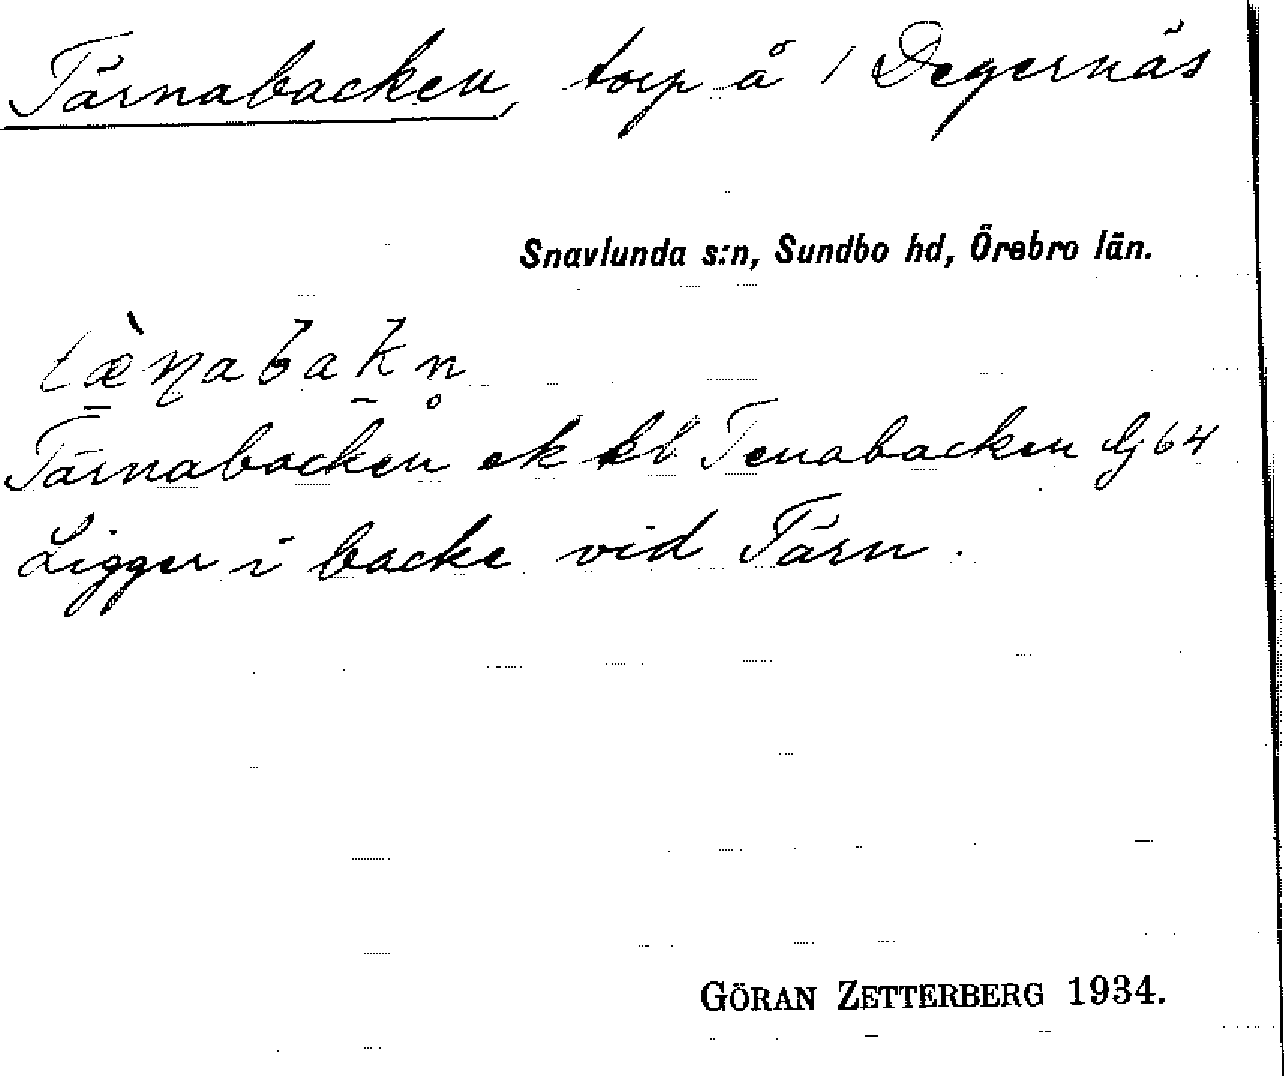 Tärnabacken, torp å 1 Degernäs
Snavlunda s:n, Sundbo hd, Örebro län.
tæ̀ɳabakn̥
Tärnabacken ek kl Tenabacken Gj 64
Ligger i backe vid Tärn.
GÖRAN ZETTERBERG 1934.